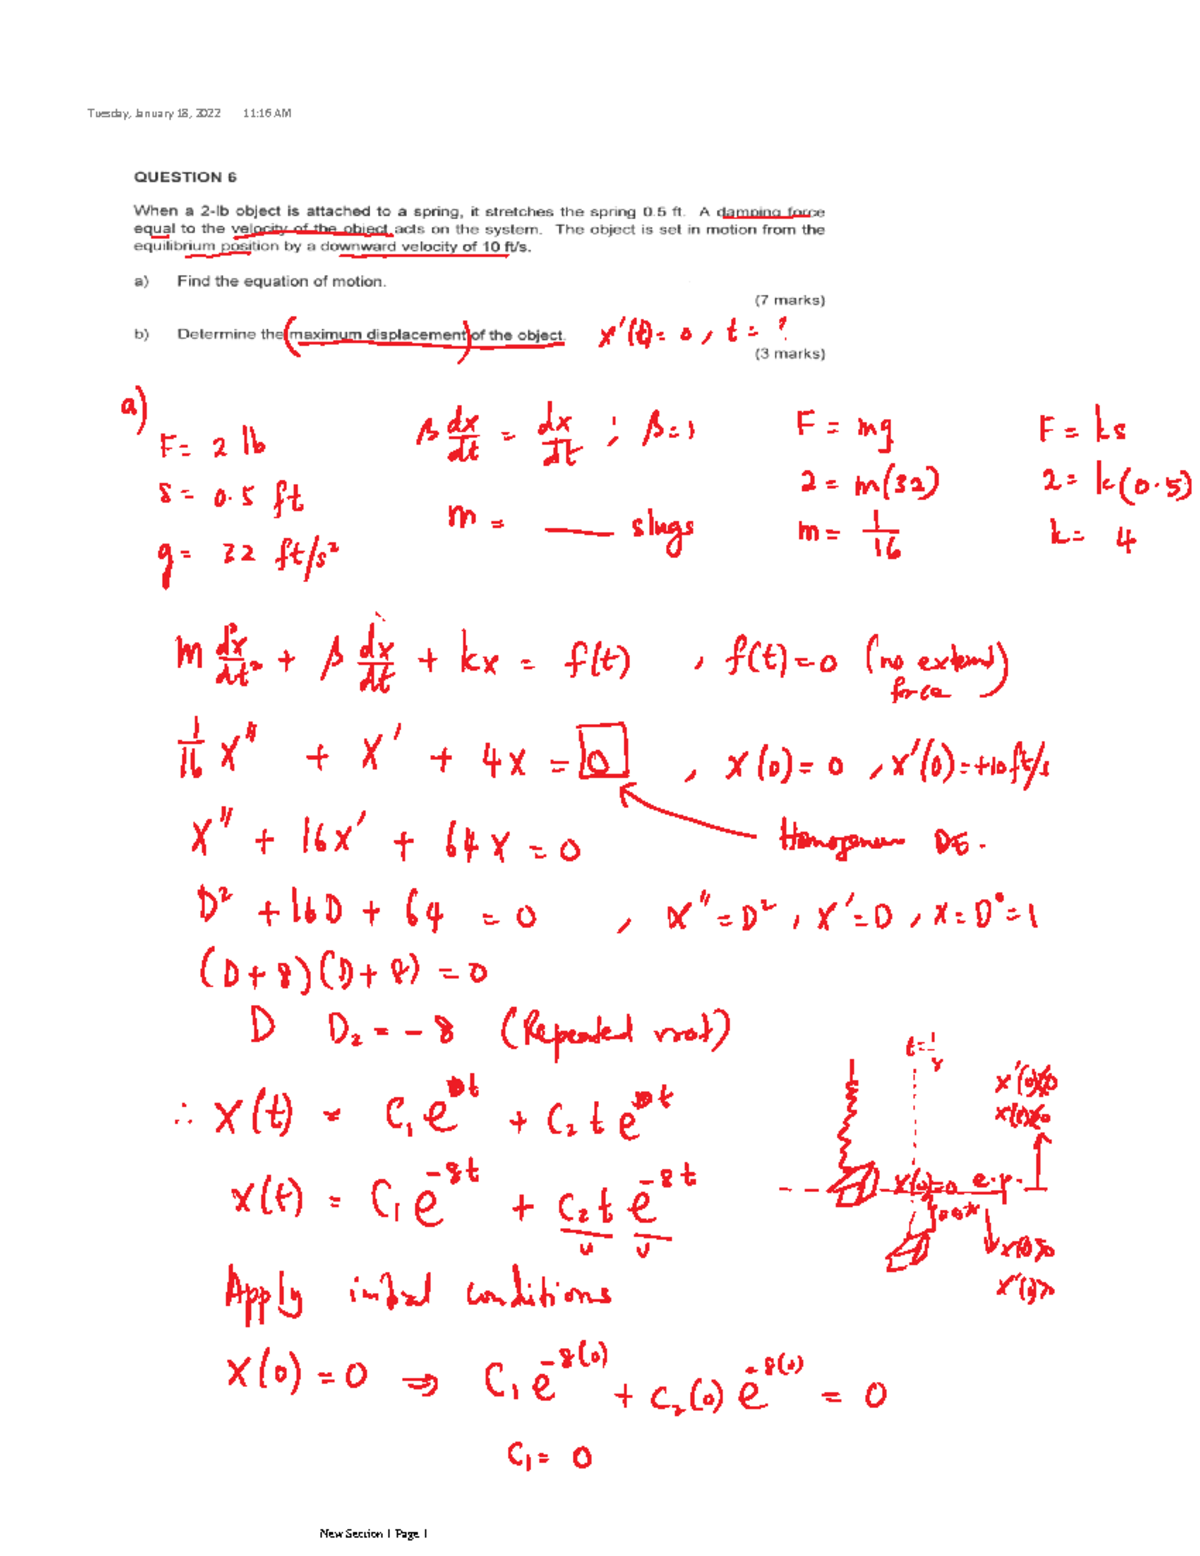 Tuesday, January 18, 2022 11:16 AM
QUESTION 6
When a 2-lb object is attached to a spring, it stretches the spring 0.5 ft. A damping force
equal to the velocity of the object acts on the system. The object is set in motion from the
equilibrium position by a downward velocity of 10 ft/s.
a) Find the equation of motion.
(7 marks)
b) Determine the (maximum displacement) of the object. x'(t) = 0, t = ?
(3 marks)
a)
F = 2 lb β dx/dt = dx/dt ; β = 1 F = mg F = ks
s = 0.5 ft 2 = m(32) 2 = k(0.5)
m = __ slugs m = 1/16 k = 4
g = 32 ft/s²
m d²x/dt² + β dx/dt + kx = f(t) , f(t) = 0 (no extend
force)
1/16 x'' + x' + 4x = 0 , x(0) = 0 , x'(0) = +10 ft/s
x'' + 16x' + 64x = 0 Homogenous DE.
D² + 16D + 64 = 0 , x'' = D² , x' = D , x = D° = 1
(D + 8)(D + 8) = 0
D D₂ = -8 (Repeated root)
t =
∴ x(t) = C₁e^t + C₂te^t
x(0)=0 e.p.
x(t) = C₁e^-8t + C₂te^-8t
u v
Apply initial conditions
x(0) = 0 ⇒ C₁e^-8(0) + C₂(0)e^-8(0) = 0
C₁ = 0
New Section 1 Page 1